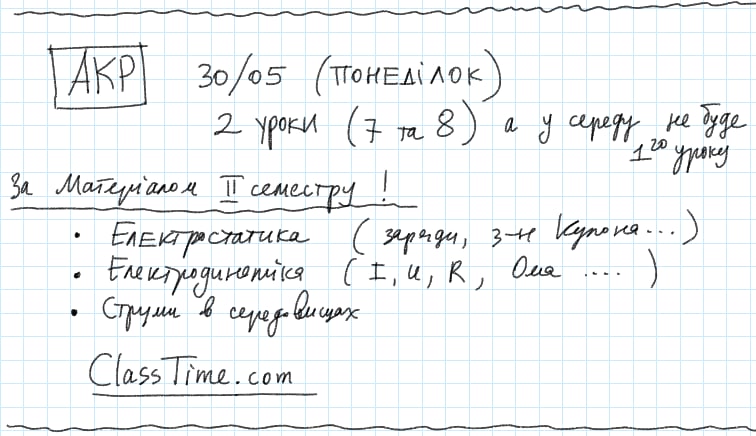 АКР 30/05 (ПОНЕДІЛОК)
2 уроки (7 та 8) а у середу не буде
1го уроку
За Матеріалом II семестру!
• Електростатика (заряди, з-н Кулона...)
• Електродинаміка (I, U, R, Ома ....)
• Струми в середовищах
ClassTime.com